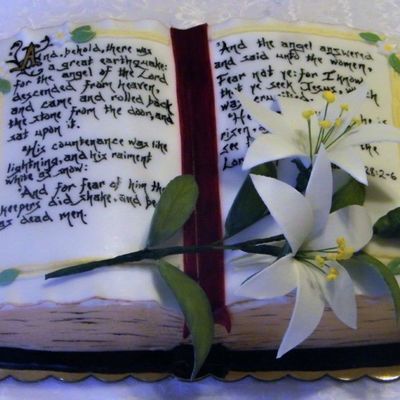 And, behold, there was
a great earthquake:
for the angel of the Lord
descended from heaven,
and came and rolled back
the stone from the door, and
sat upon it.
His countenance was like
lightning, and his raiment
white as snow:
And for fear of him the
keepers did shake, and be
as dead men.
"And the angel answered
and said unto the women,
Fear not ye: for I know
that ye seek Jesus,
was
He
is
risen,
see
the
Lor
28:2-6